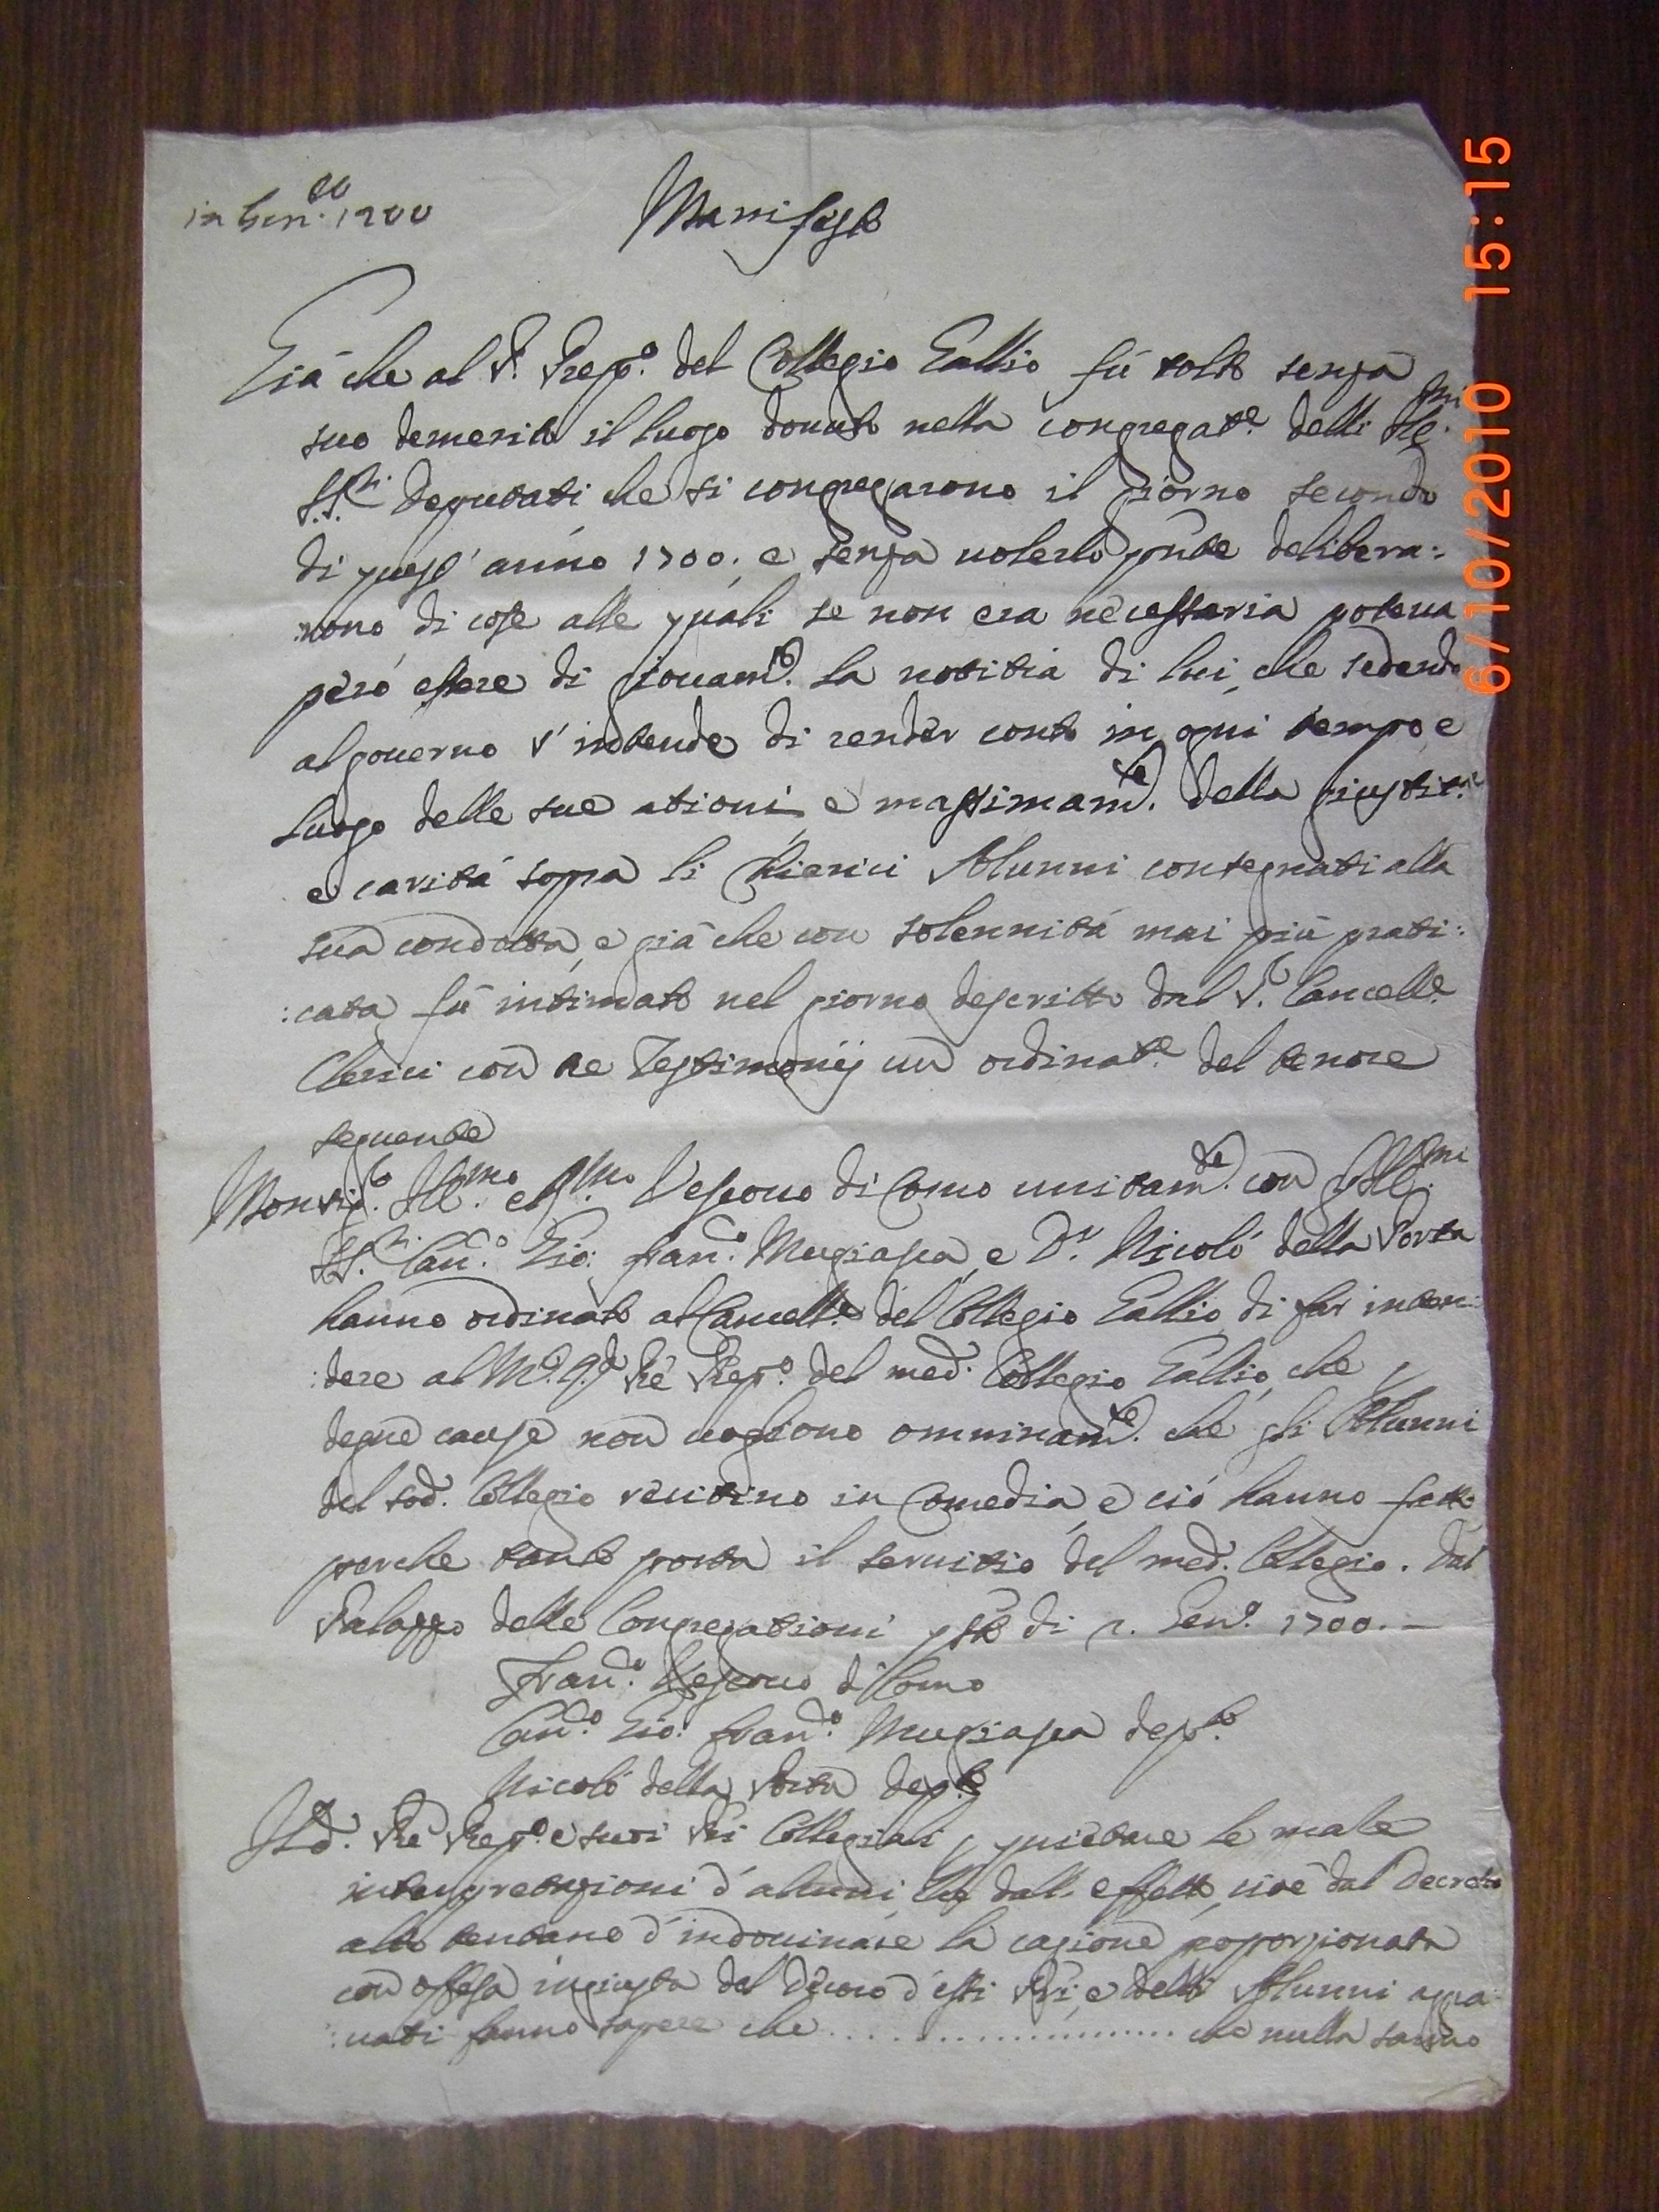 in Gen.ro 1700
Manifesto
Già che al P. Prep.o del Collegio Gallio fù tolto senza
suo demerito il luogo dovuto nella congregat.e delli Ill.mi
SS.ri Deputati che si congregarono il giorno secondo
di quest' anno 1700. e senza volerlo pñte delibera:
:rono di cose alle quali se non era necessaria poteva
però essere di giovam.to la notitia di lui, che sedendo
al governo s' intende di render conto in ogni tempo e
luogo delle sue ationi, e massimam.te della giustit.a
e carità sopra li Chierici Alunni consegnati alla
sua condotta, e già che con solennità mai più prati:
:cata fù intimato nel giorno descritto dal S.r Cancell.e
Clerici con tre Testimonij un ordinat.e del tenore
seguente
Monsig.r Ill.mo e R.mo Vescovo di Como unitam.te con gl' Ill.mi
SS.ri Can.co Gio: Fran.co Mugiasca, e D.r Nicolò della Porta
hanno ordinato al Cancell.e del Collegio Gallio di far inten:
:dere al M.o R.do Prē Prep.o del med.o Collegio Gallio, che p
degne cause non vogliono omninam.te che gli Alunni
del sod.o Collegio recitino in Comedia, e ciò hanno fatto
perche tanto porta il servitio del med.o Collegio. Dal
Palazzo delle Congregationi qsto dì 2. Gen.o 1700.
Fran.co Vescovo di Como
Can.co Gio: Fran.co Mugiasca dep.to
Nicolò della Porta dep.to
Il d.o Prē Prep.o e suoi Pri Collegiali p quietare le male
interpretazioni d' alcuni, che dall' effetto, cioè dal Decreto
alto tentano d' indovinare la cagione proporzionata
con offesa ingiusta del decoro d' essi Pri, e delli Alunni agra:
:vati fanno sapere che ...................... che nulla sanno
6/10/2010 15:15